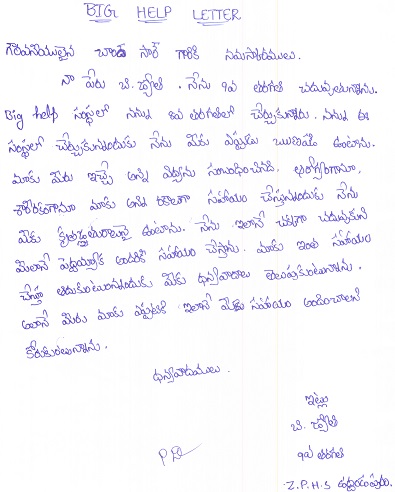 BIG HELP LETTER
గౌరవనీయులైన చాంద్ సార్ గారికి నమస్కారములు.
నా పేరు బి. జ్యోతి. నేను 9వ తరగతి చదువుతున్నాను.
Big help సంస్థలో నన్ను 9వ తరగతిలో చేర్చుకున్నారు. నన్ను ఈ
సంస్థలో చేర్చుకున్నందుకు నేను మీకు ఎప్పుడు ఋణపడి ఉంటాను.
మాకు మీరు ఇచ్చే అన్ని విద్యాను సంబంధించినవి, ఆరోగ్యంగానూ,
శారీరకంగానూ మాకు అన్ని రకాలుగా సహాయం చేస్తున్నందుకు నేను
మీకు కృతజ్ఞతురాలునై ఉంటాను. నేను ఇలానే చక్కగా చదువుకుని
మీలానే పెద్దయ్యాక అందరికి సహాయం చేస్తాను. మాకు ఇంత సహాయం
చేస్తూ ఆదుకుంటున్నందుకు మీకు ధన్యవాదాలు తెలుపుకుంటున్నాను.
అలానే మీరు మాకు ఎప్పటికి ఇలానే మీ సహాయం అందించాలని
కోరుకుంటున్నాను.
ధన్యవాదములు.
ఇట్లు
బి. జ్యోతి
9వ తరగతి
Z.P.H.S ఉద్దండపురం.